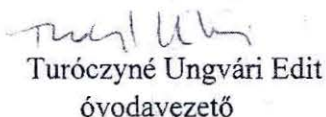 Turóczyné Ungvári Edit
óvodavezető